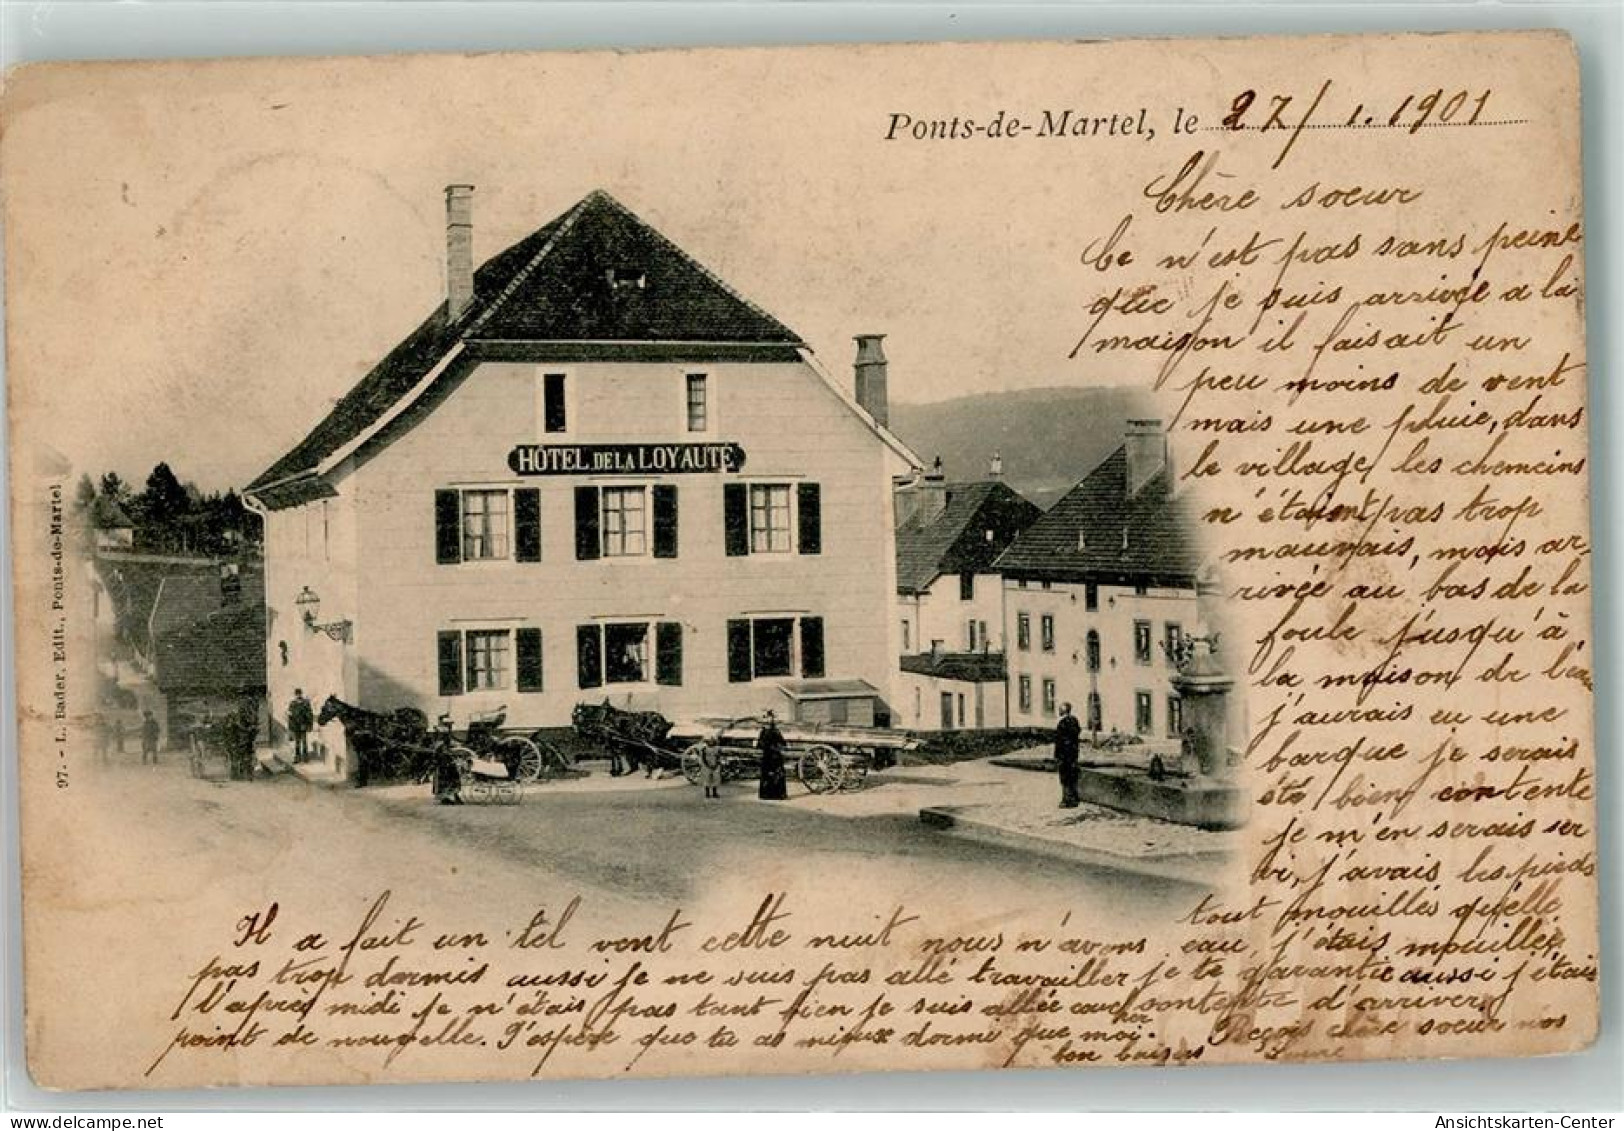 Ponts-de-Martel, le 27/1.1901
Chère soeur
Ce n'est pas sans peine
que je suis arrivée a la
maison il faisait un
peu moins de vent
mais une pluie, dans
le village les chemeins
n'étaient pas trop
mauvais, mais ar-
rivée au bas de la
foule j'usqu'à
la maison de l'eau
j'aurais eu une
barque je serais
été bien contente
je m'en serais ser
vi, j'avais les pieds
tout mouillés qu'elle
eau, j'étais mouillée,
je te garantie aussi j'étais
contente d'arriver
Reçois chère soeur nos
bon baisers
HÔTEL DE LA LOYAUTÉ
97. - L. Bader, Edit., Ponts-de-Martel
Il a fait un tel vent cette nuit nous n'avons
pas trop dormis aussi je ne suis pas allé travailler
l'après midi je n'étais pas tant bien je suis allée coucher
point de nouvelle. J'espère que tu as mieux dormi que moi.
Ansichtskarten-Center
www.delcampe.net